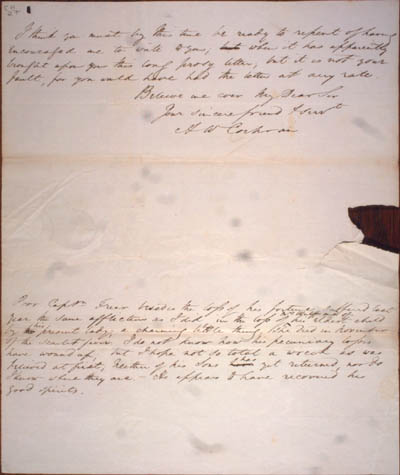 I think you must by this time be ready to repent of having
encouraged me to write to you, when it has apparently
brought upon you this long prosy letter, but it is not your
fault, for you would have had the letter at any rate.
Believe me ever My Dear Sir
Your sincere friend & servt
A W Cochran
Poor Captn Freer besides the loss of his fortune suffered last
year the same affliction as I did in the loss of his child
by his present lady, a charming little thing. She died in November
of the scarlet fever. I do not know how his pecuniary losses
have wound up, but I hope not so total a wreck as was
believed at first, Neither of his sons has yet returned, nor do
I know where they are. He appears to have recovered his
good spirits.